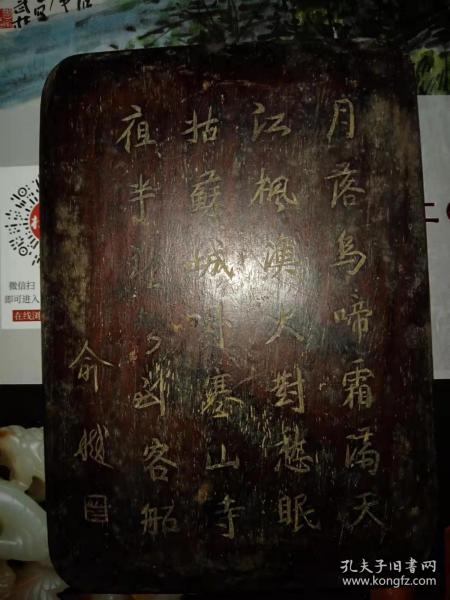 月落烏啼霜滿天
江楓漁火對愁眠
姑蘇城外寒山寺
夜半鐘聲到客船
俞樾
微信扫
即可进入
在线浏
孔夫子旧书网
www.kongfz.com